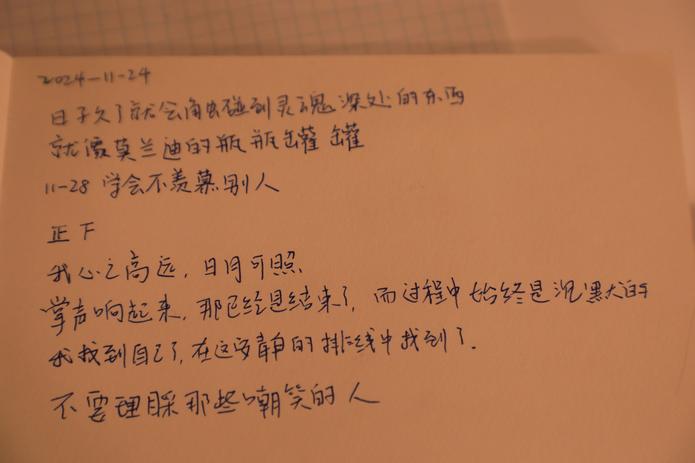 2024-11-24
日子久了就会触碰到灵魂深处的东西
就像莫兰迪的瓶瓶罐罐
11-28 学会不羡慕别人
正下
我心之高远，日月可照
掌声响起来，那已经是结束了，而过程中始终是沉默的
我找到自己了，在这安静的排线中找到了.
不要理睬那些嘲笑的人